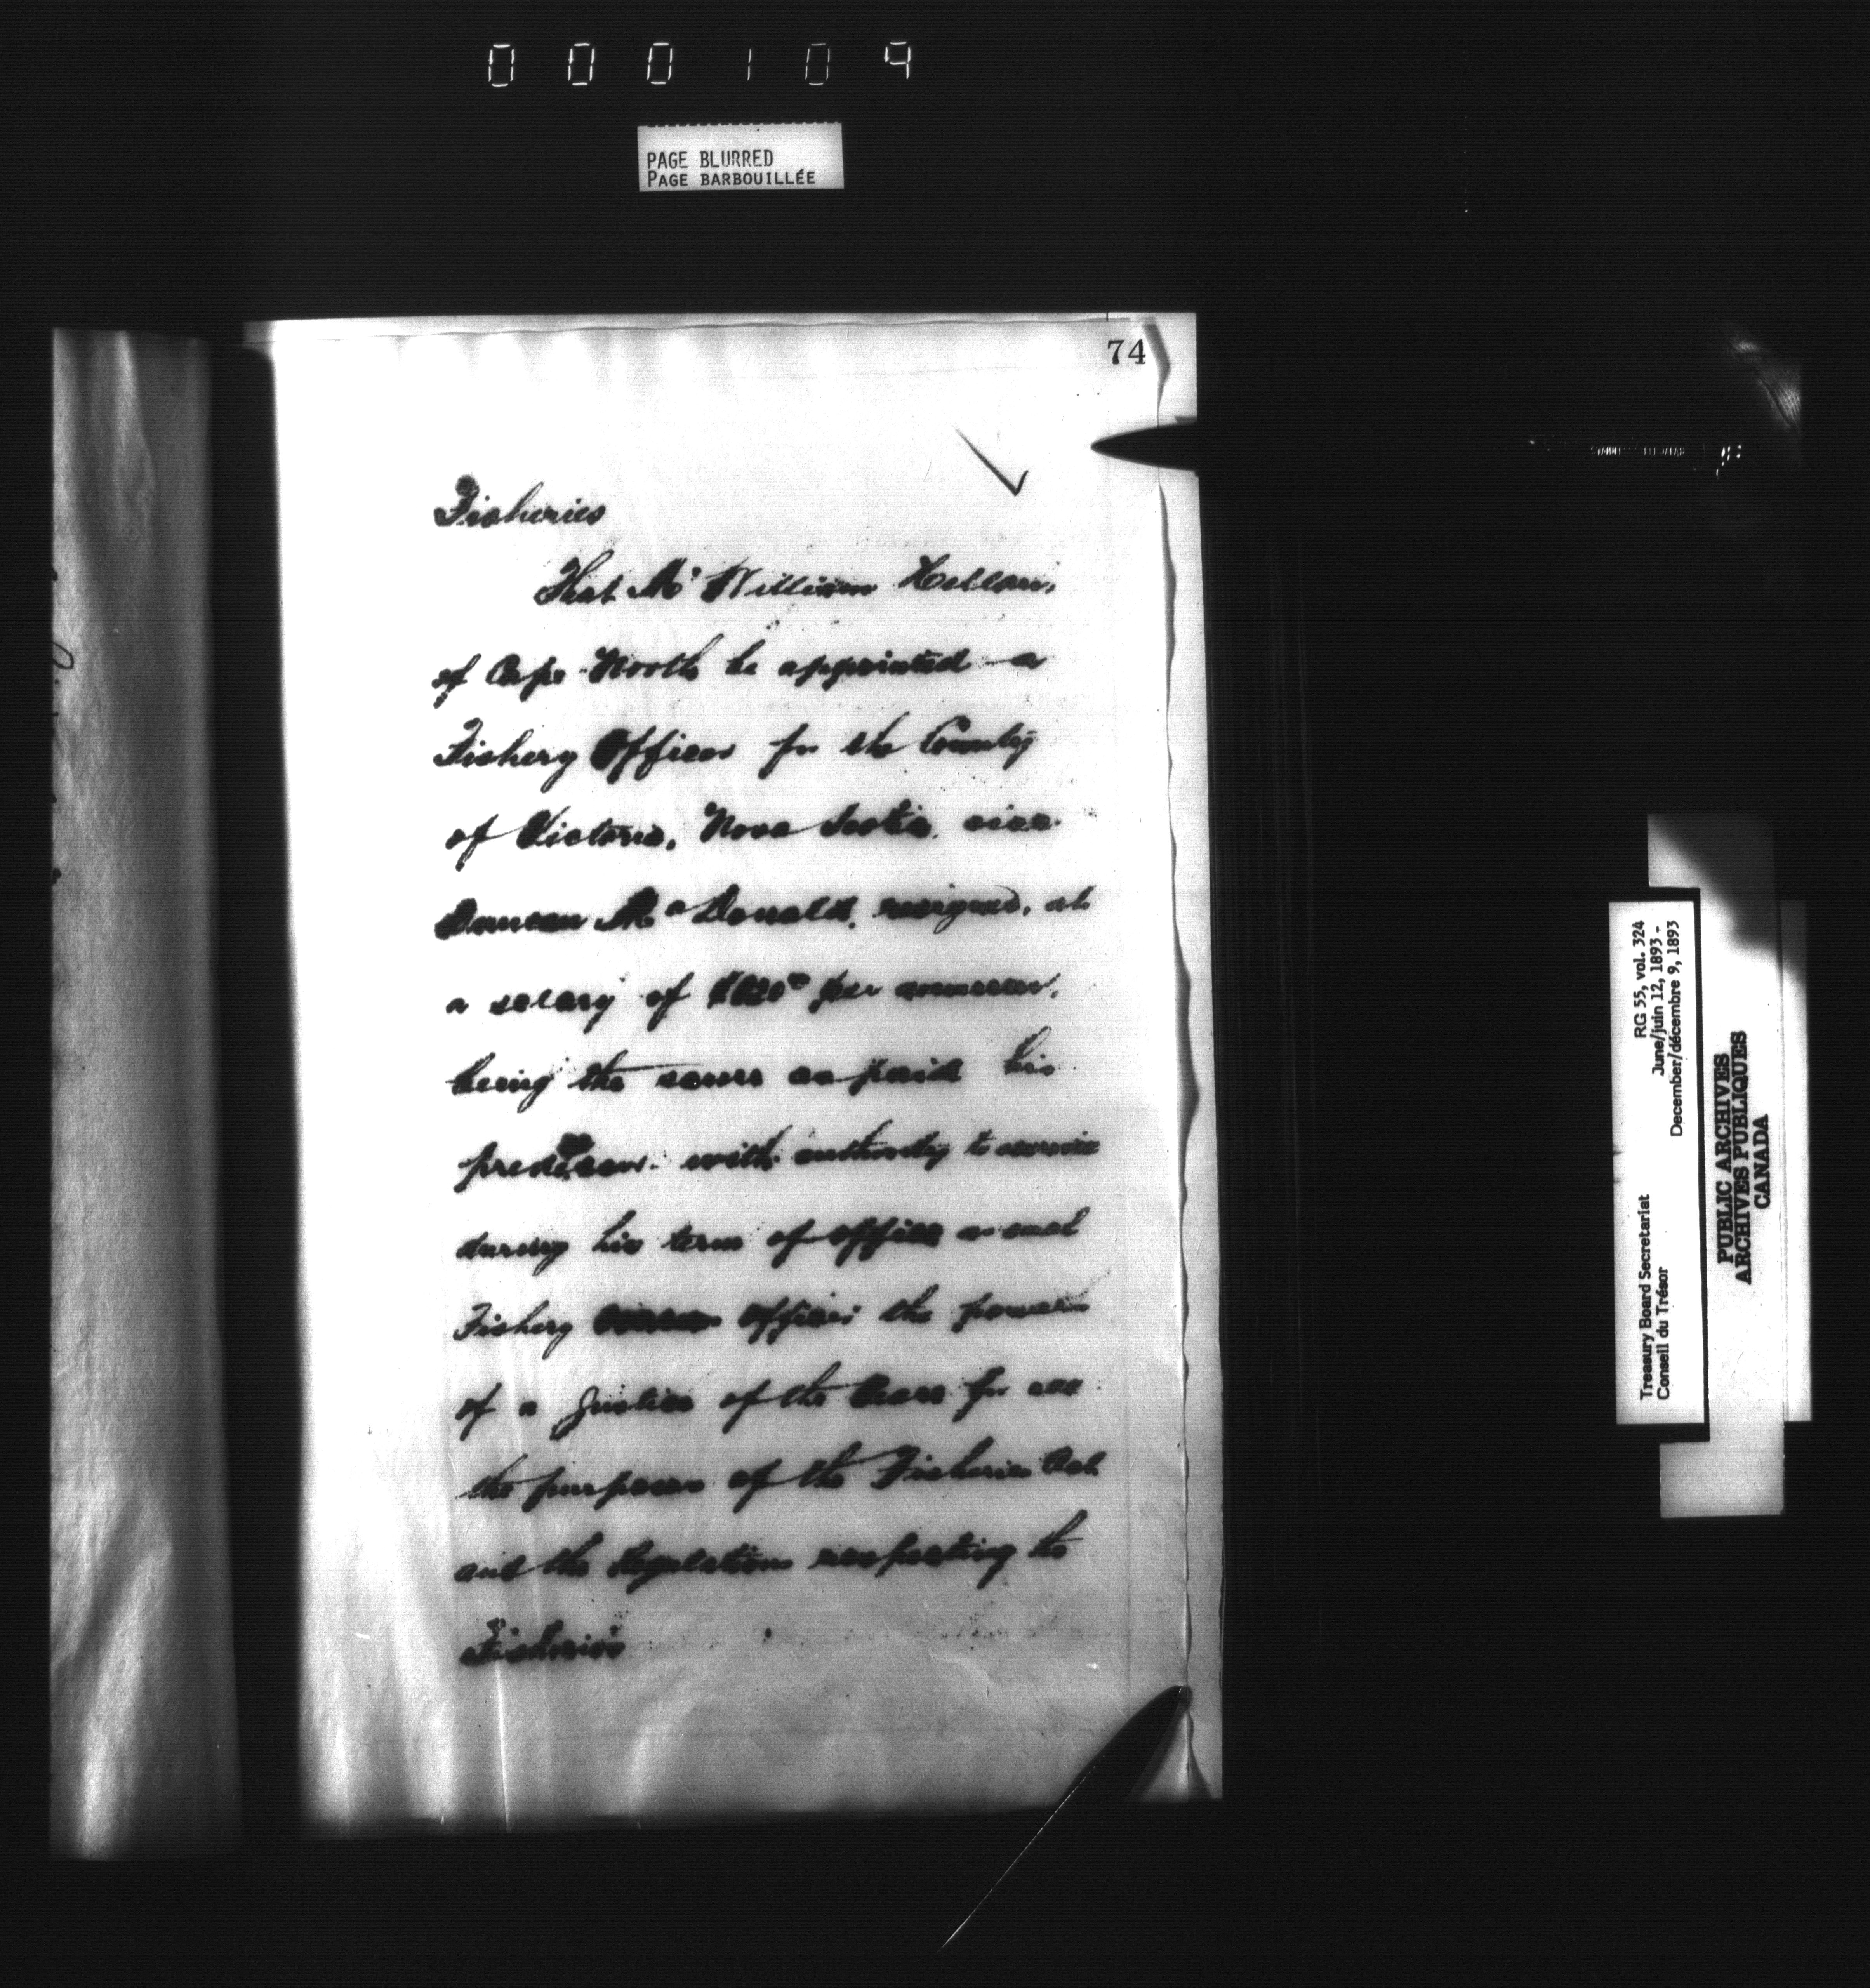 000109
PAGE BLURRED
PAGE BARBOUILLÉE
74
Fisheries
That Mr William
of Cape North be appointed a
Fishery Officer for the County
of Victoria, Nova Scotia, vice
Duncan McDonald, resigned, at
a salary of per annum,
being the same as paid his
predecessor. with authority to exercise
during his term of office as such
Fishery Officer the powers
of a Justice of the Peace for all
the purposes of the Fisheries Act
and the Regulations respecting the
Fisheries
RG 55, vol. 324
June/juin 12, 1893 -
December/décembre 9, 1893
Treasury Board Secretariat
Conseil du Trésor
PUBLIC ARCHIVES
ARCHIVES PUBLIQUES
CANADA